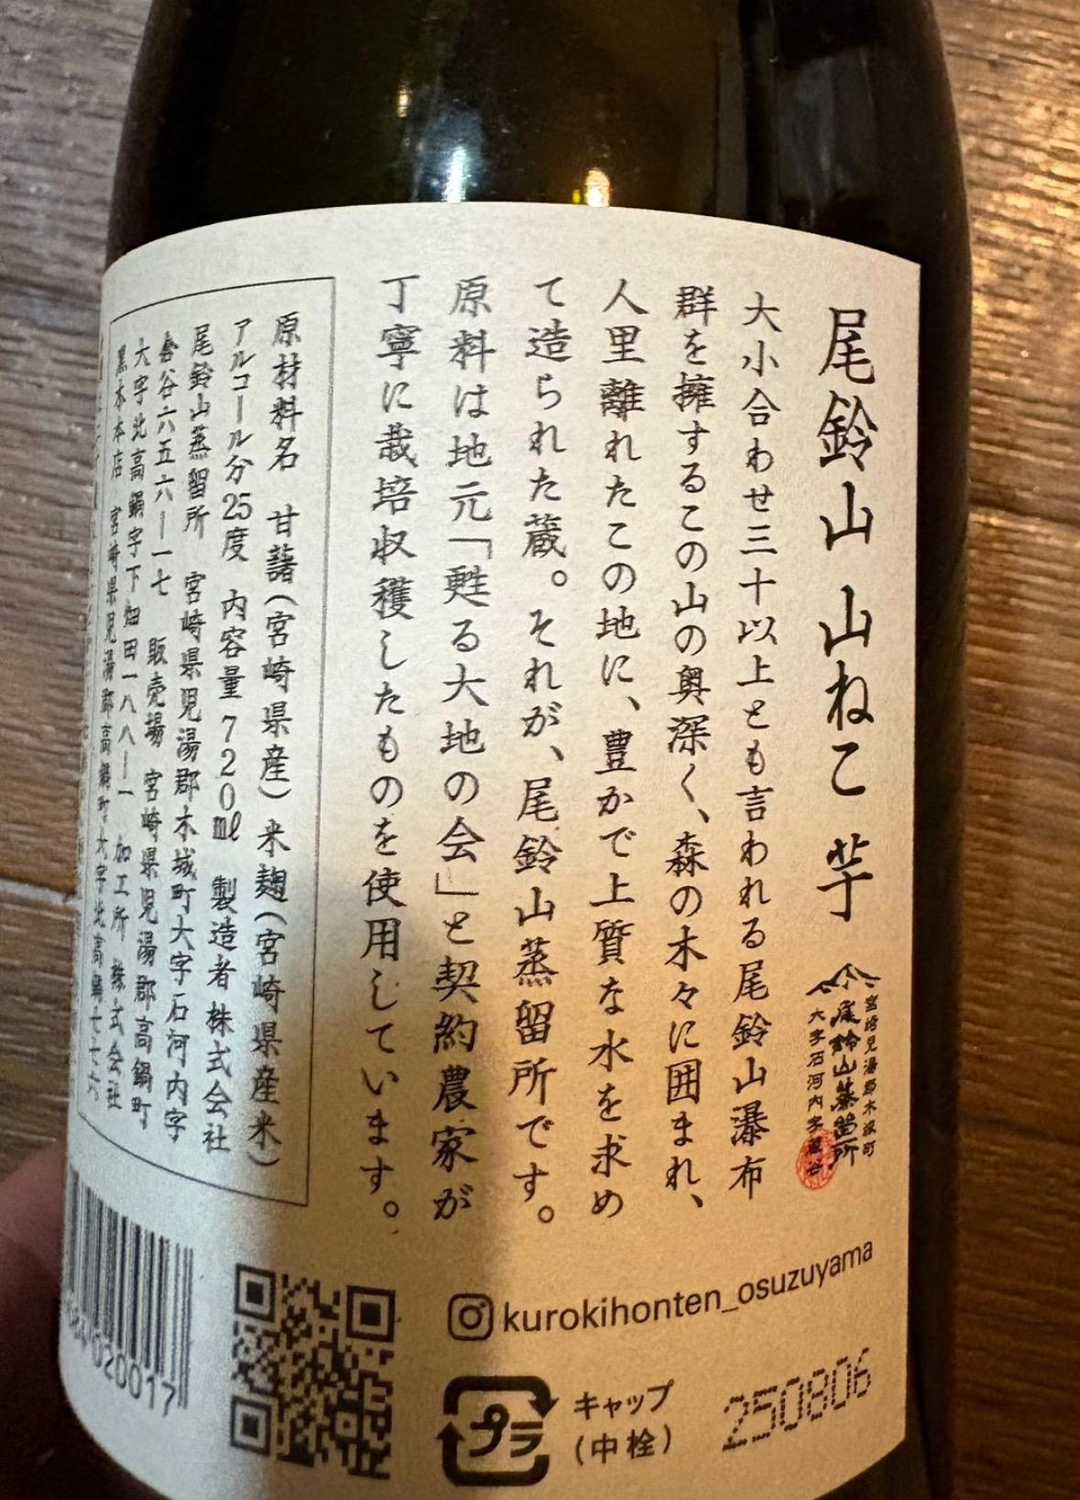 尾鈴山 山ねこ 芋
宮崎県児湯郡木城町
尾鈴山蒸留所
大字石河内字倉谷
大小合わせ三十以上とも言われる尾鈴山瀑布
群を擁するこの山の奥深く、森の木々に囲まれ、
人里離れたこの地に、豊かで上質な水を求め
て造られた蔵。それが、尾鈴山蒸留所です。
原料は地元「甦る大地の会」と契約農家が
丁寧に栽培収穫したものを使用しています。
原材料名 甘藷(宮崎県産)米麹(宮崎県産米)
アルコール分25度 内容量720ml 製造者 株式会社
尾鈴山蒸留所 宮崎県児湯郡木城町大字石河内字
倉谷六五六―一七 販売場 宮崎県児湯郡高鍋町
大字北高鍋字下畑田一八八―一 加工所 株式会社
黒木本店 宮崎県児湯郡高鍋町大字北高鍋七七六
kurokihonten_osuzuyama
プラ
キャップ
(中栓)
250806
020017